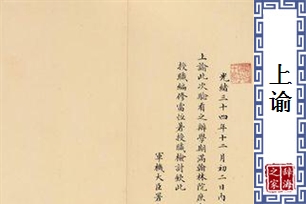 光緒三十四年十二月初二日內
上諭此次驗看之辦學期滿翰林院庶
授職編修雷恒著授職檢討欽此
軍機大臣署
上谕
辞海
之家